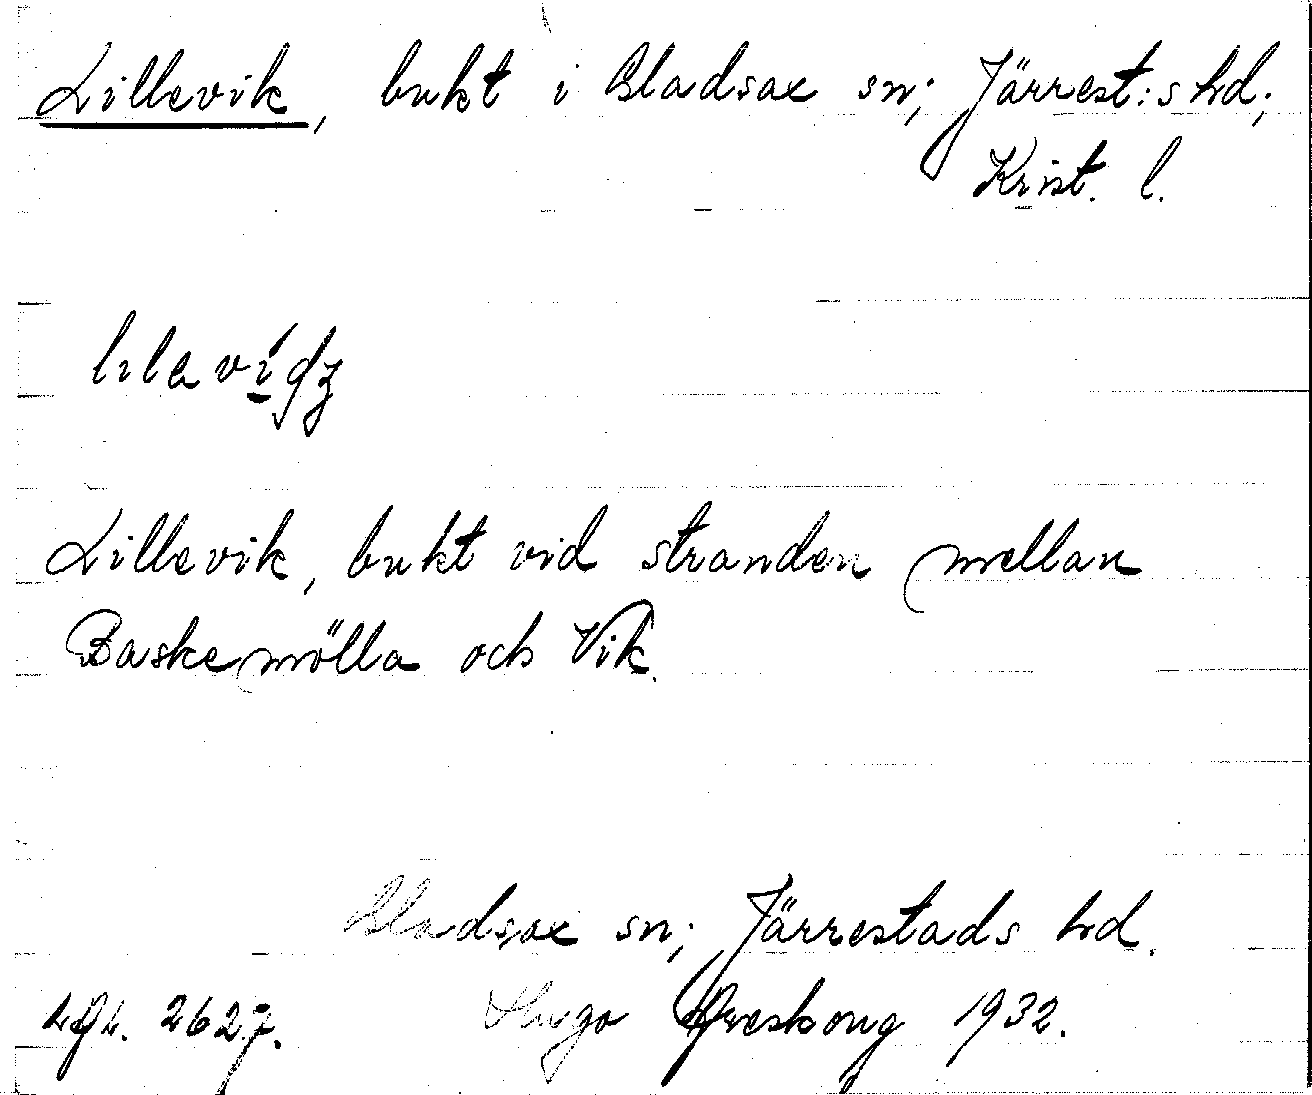 Lillevik, bukt i Gladsax sn; Järrest:s hd;
Krist. l.
Lillevik, bukt vid stranden mellan
Baskemölla och Vik.
Gladsax sn; Järrestads hd.
2627. Hugo Areskoug 1932.